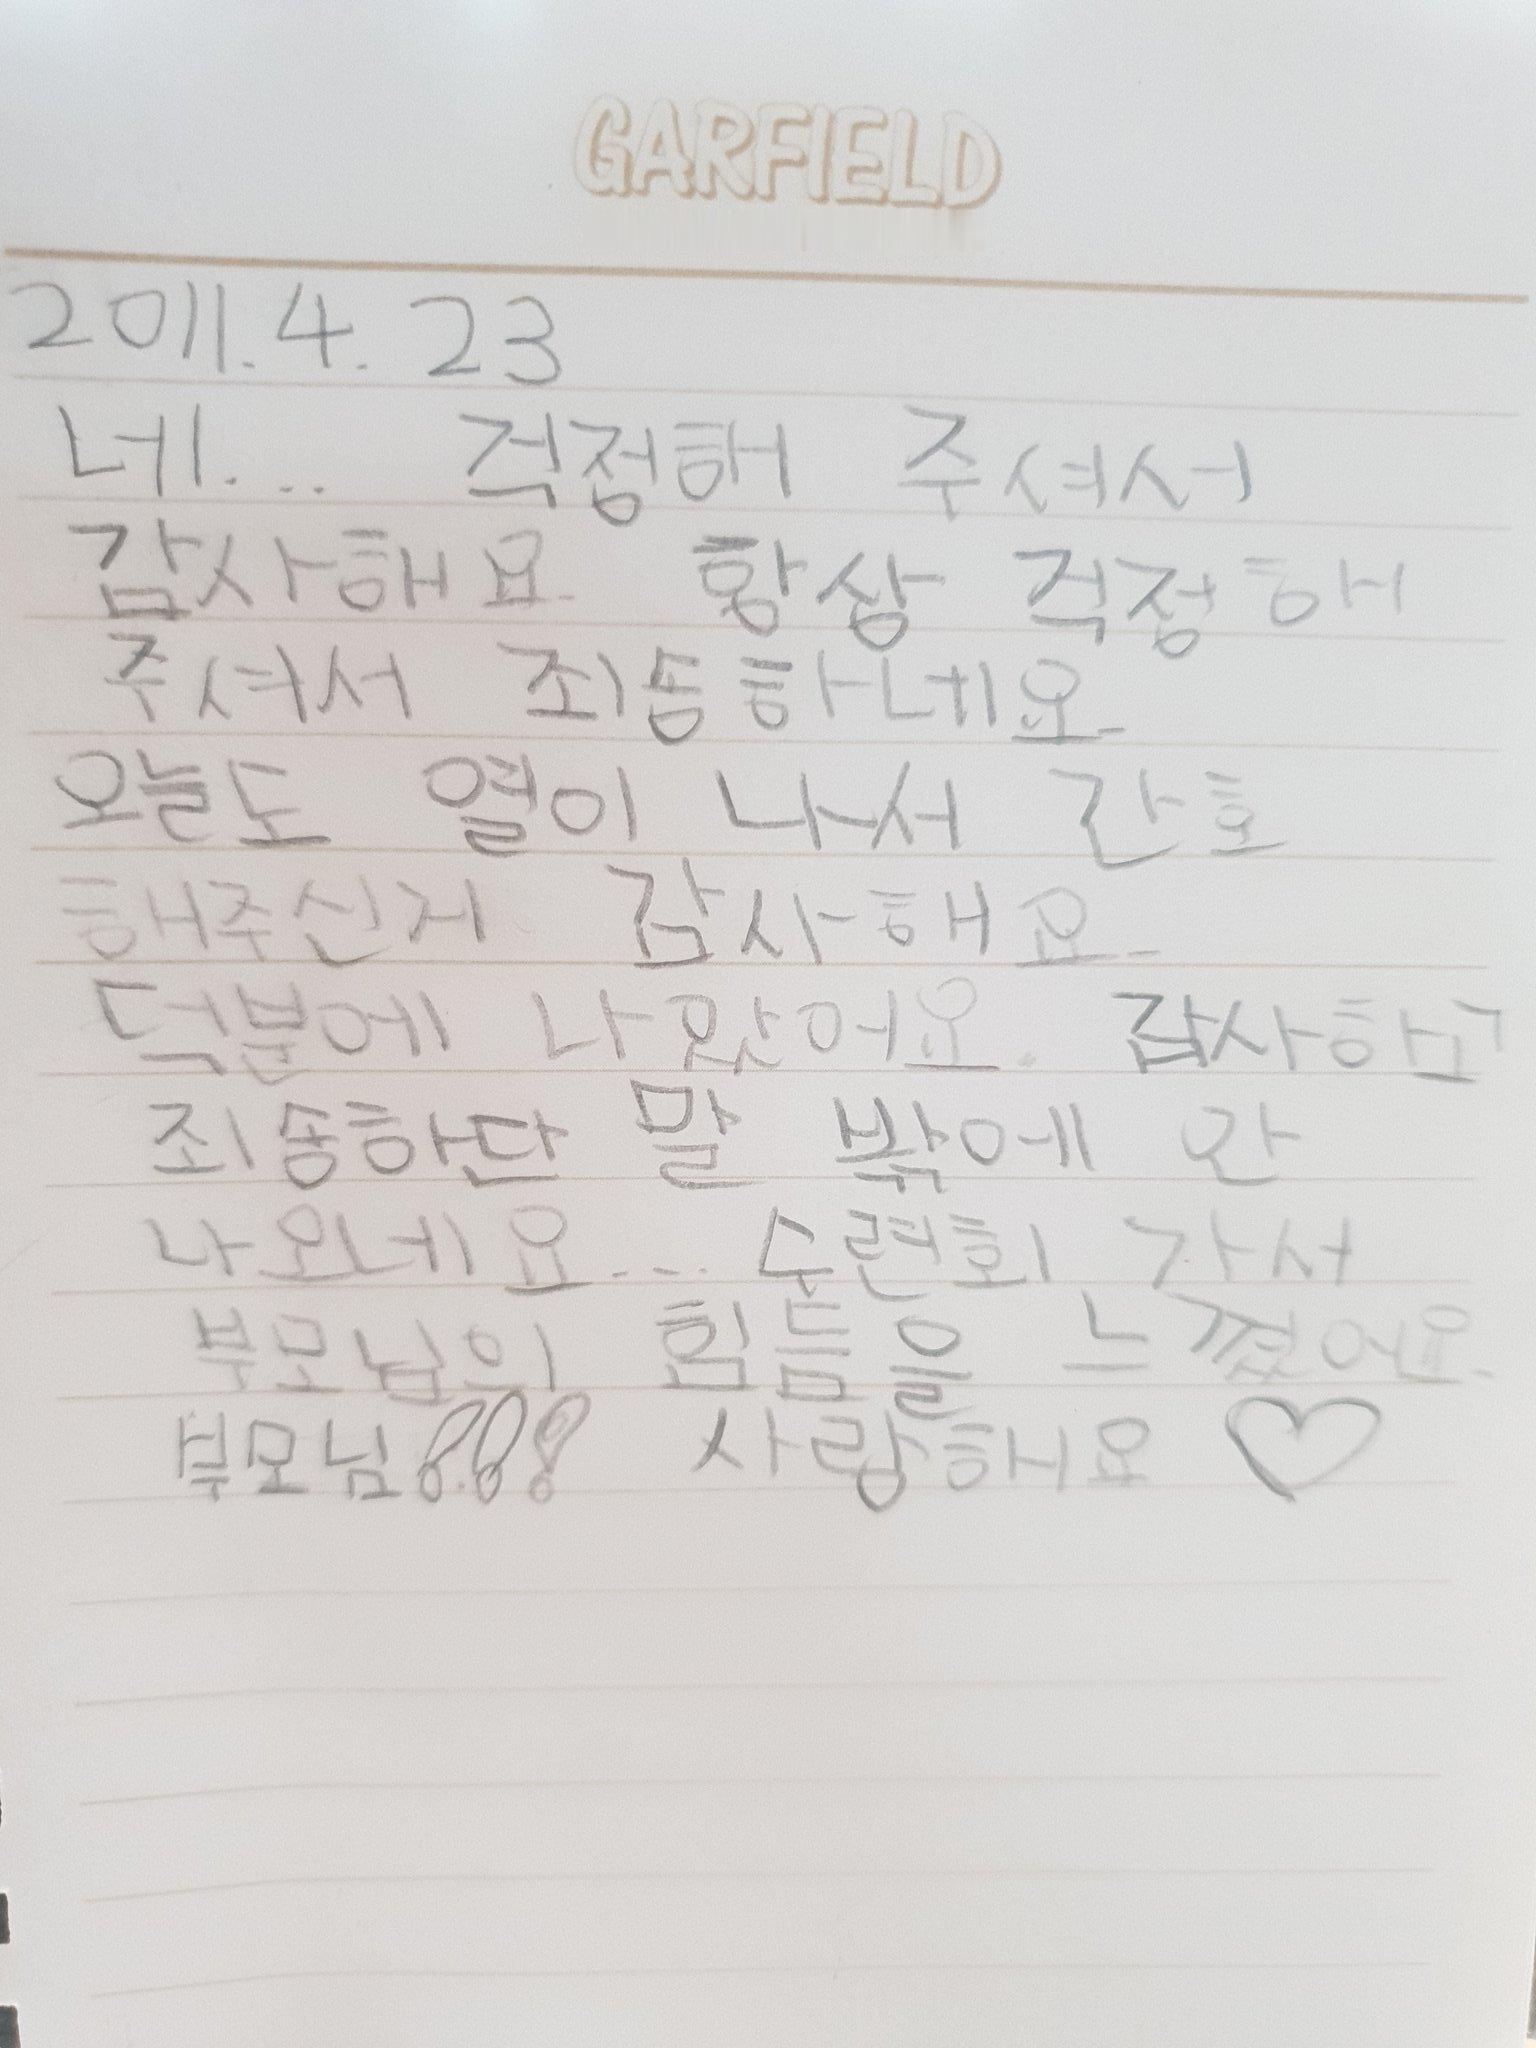 GARFIELD
2011.4.23
네... 걱정해 주셔서
감사해요. 항상 걱정해
주셔서 죄송하네요.
오늘도 열이 나서 간호
해주신거 감사해요.
덕분에 나았어요. 감사하고
죄송하단 말 밖에 안
나오네요... 수련회 가서
부모님의 힘듬을 느꼈어요.
부모님!!! 사랑해요♡